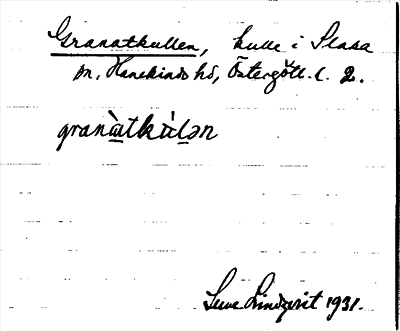 Granatkullen, kulle i Slaka
sn. Hanekinds hd, Östergötl. l. 2.
granàtkùlən
Sune Lindqvist 1931.